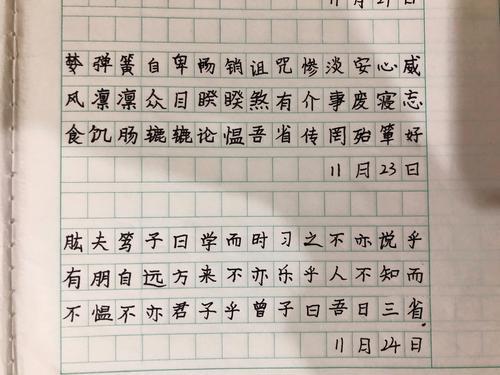 11月21日
弹簧自卑畅销诅咒惨淡安心威
风凛凛众目睽睽煞有介事废寝忘
食饥肠辘辘论愠吾省传罔殆箪好
11月23日
肱夫笃子曰学而时习之不亦说乎
有朋自远方来不亦乐乎人不知而
不愠不亦君子乎曾子曰吾日三省
11月24日